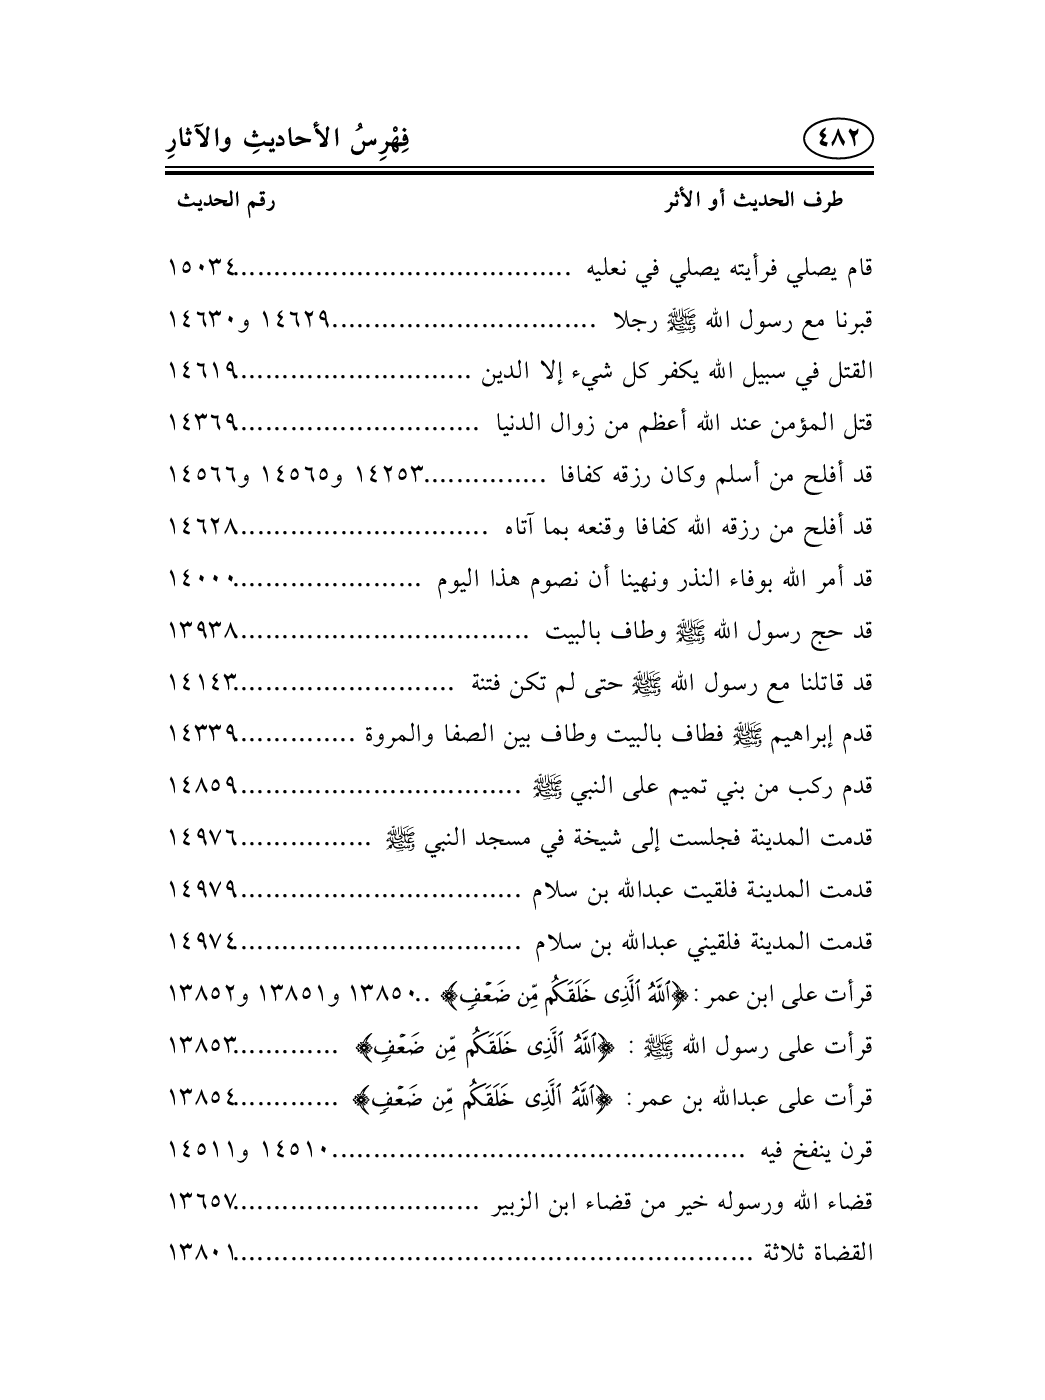 ٤٨٢ فِهْرِسُ الأحاديثِ والآثارِ
طرف الحديث أو الأثر رقم الحديث
قام يصلي فرأيته يصلي في نعليه ........................................١٥٠٣٤
قبرنا مع رسول الله ﷺ رجلا ................................١٤٦٢٩ و١٤٦٣٠
القتل في سبيل الله يكفر كل شيء إلا الدين ............................١٤٦١٩
قتل المؤمن عند الله أعظم من زوال الدنيا .............................١٤٣٦٩
قد أفلح من أسلم وكان رزقه كفافا ...............١٤٢٥٣ و١٤٥٦٥ و١٤٥٦٦
قد أفلح من رزقه الله كفافا وقنعه بما آتاه ..............................١٤٦٢٨
قد أمر الله بوفاء النذر ونهينا أن نصوم هذا اليوم .......................١٤٠٠٠
قد حج رسول الله ﷺ وطاف بالبيت ...................................١٣٩٣٨
قد قاتلنا مع رسول الله ﷺ حتى لم تكن فتنة ...........................١٤١٤٣
قدم إبراهيم ﷺ فطاف بالبيت وطاف بين الصفا والمروة ..............١٤٣٣٩
قدم ركب من بني تميم على النبي ﷺ ..................................١٤٨٥٩
قدمت المدينة فجلست إلى شيخة في مسجد النبي ﷺ ................١٤٩٧٦
قدمت المدينة فلقيت عبدالله بن سلام ..................................١٤٩٧٩
قدمت المدينة فلقيني عبدالله بن سلام ..................................١٤٩٧٤
قرأت على ابن عمر : ﴿ٱللَّهُ ٱلَّذِى خَلَقَكُم مِّن ضَعۡفٖ﴾ ..١٣٨٥٠ و١٣٨٥١ و١٣٨٥٢
قرأت على رسول الله ﷺ : ﴿ٱللَّهُ ٱلَّذِى خَلَقَكُم مِّن ضَعۡفٖ﴾ .............١٣٨٥٣
قرأت على عبدالله بن عمر : ﴿ٱللَّهُ ٱلَّذِى خَلَقَكُم مِّن ضَعۡفٖ﴾ .............١٣٨٥٤
قرن ينفخ فيه ..................................................١٤٥١٠ و١٤٥١١
قضاء الله ورسوله خير من قضاء ابن الزبير ..............................١٣٦٥٧
القضاة ثلاثة ...............................................................١٣٨٠١